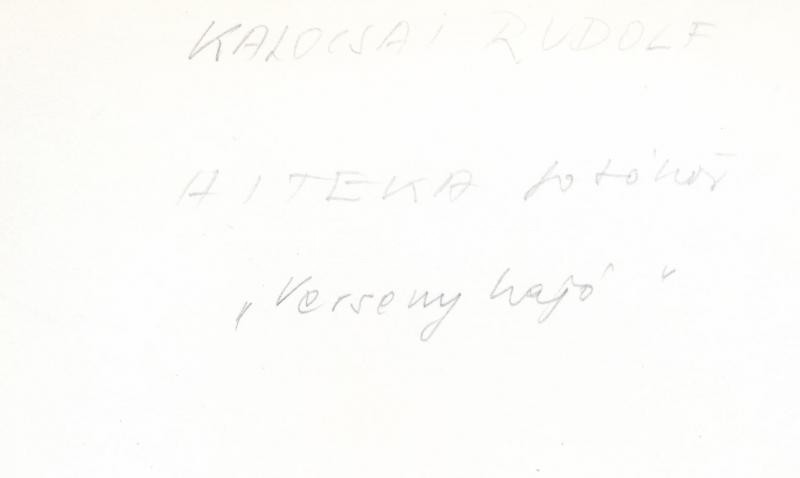 KALOCSAI RUDOLF
HITEKA fotókör
„Verseny hajó"